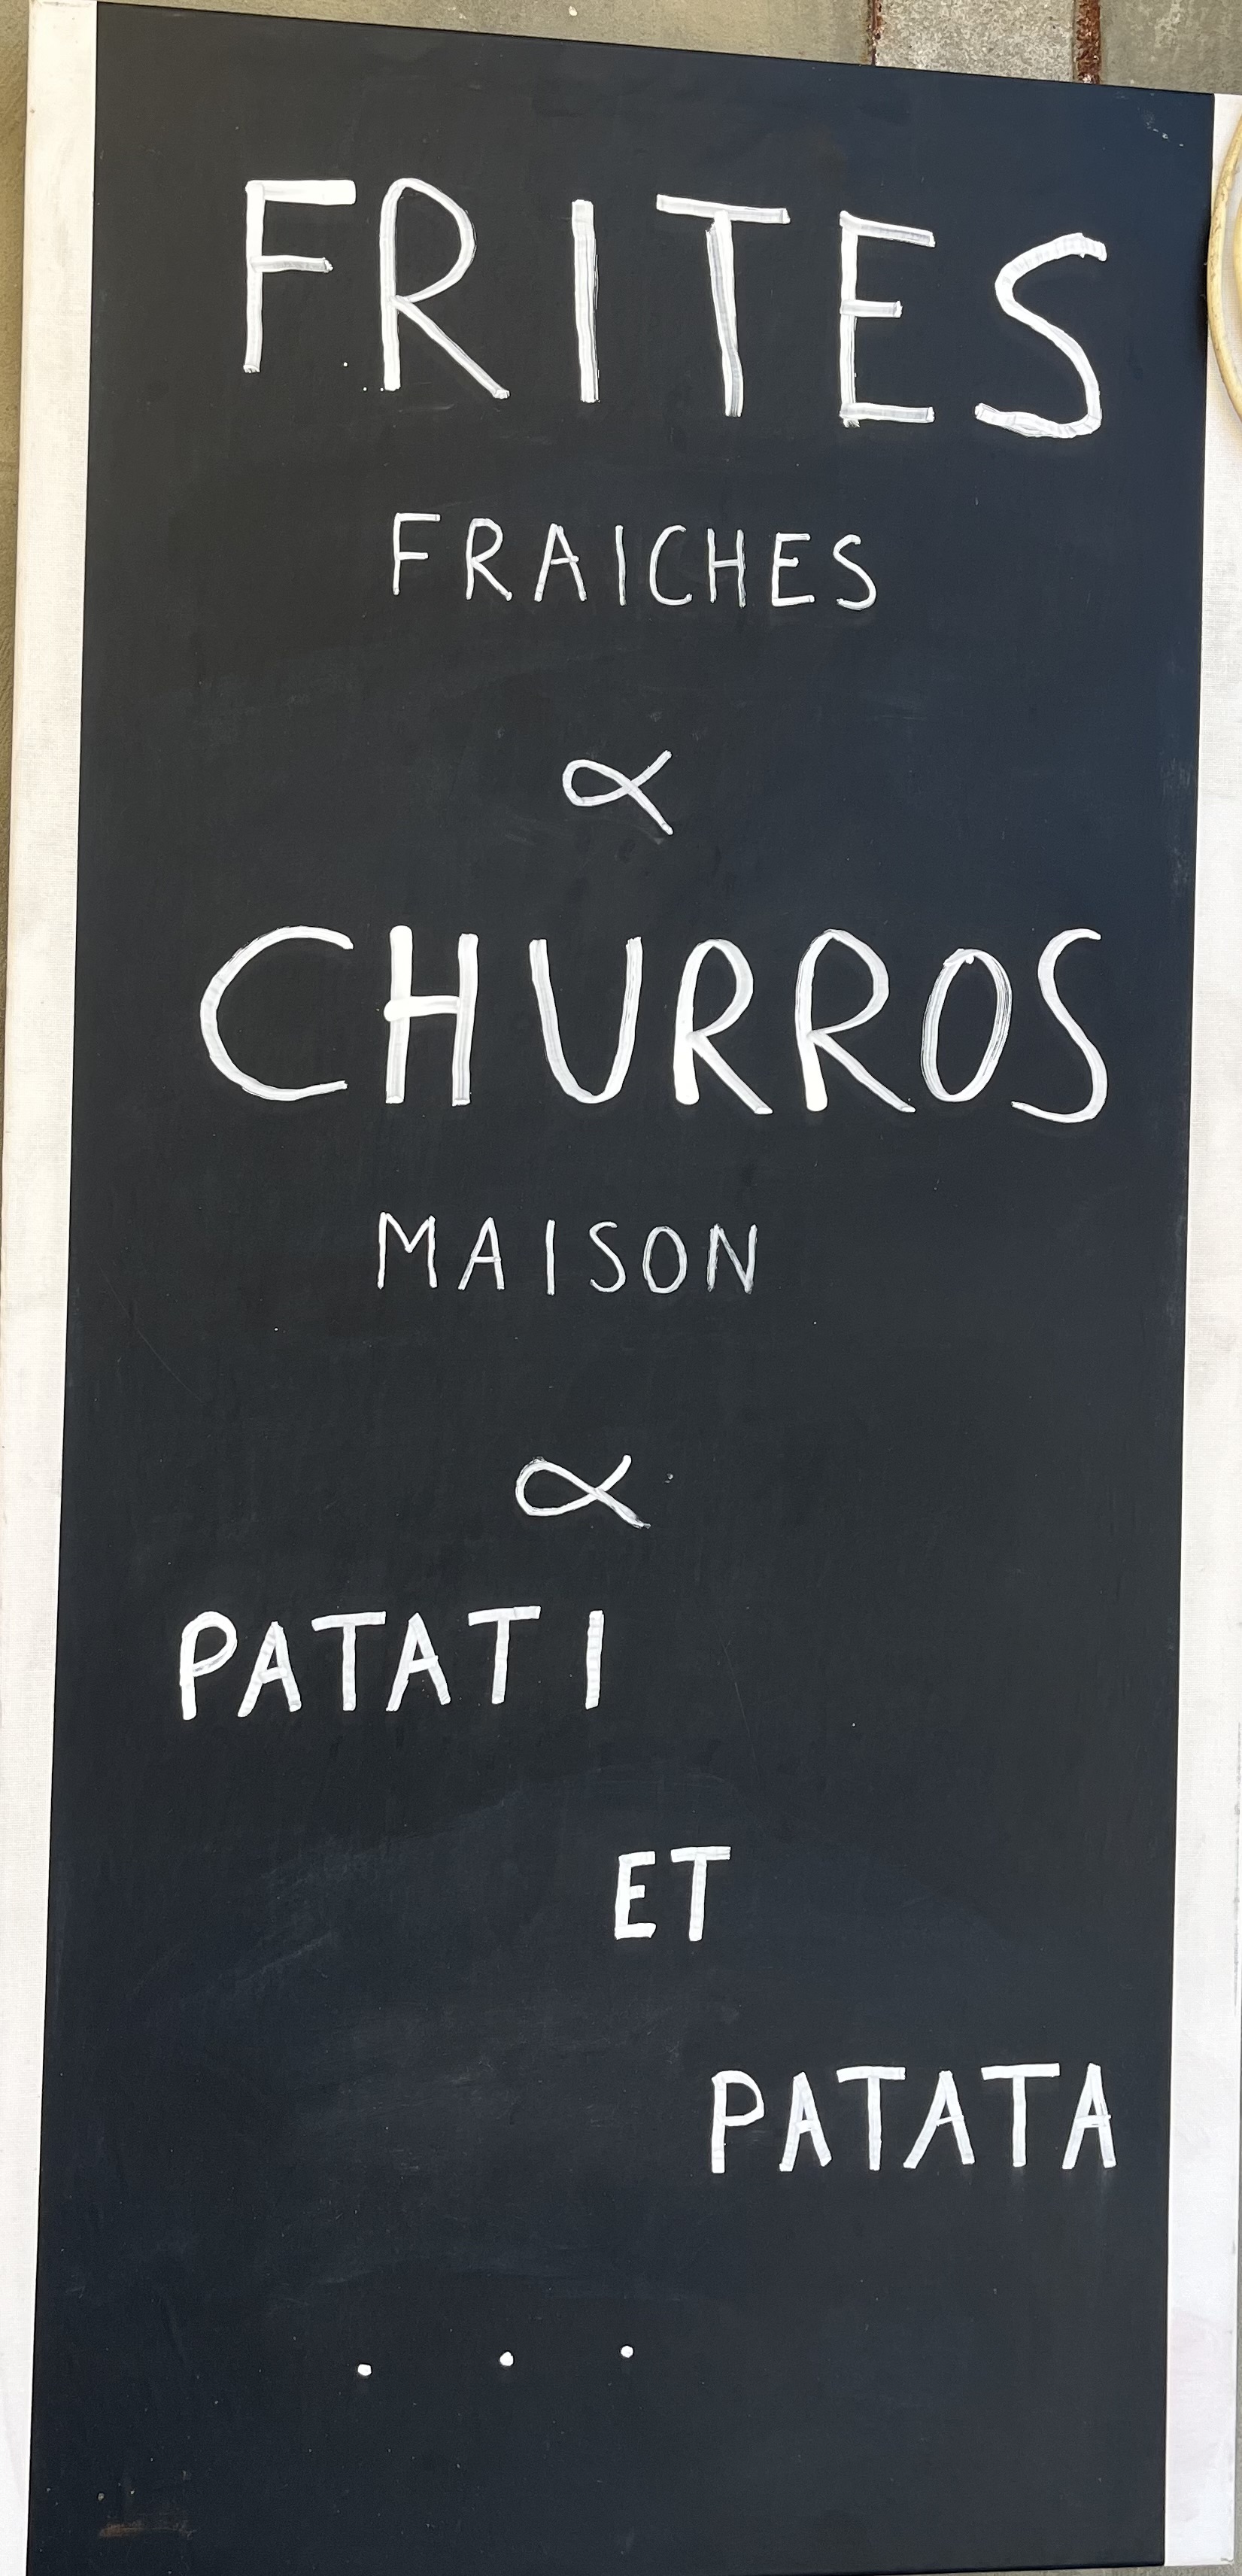 FRITES
FRAICHES
∝
CHURROS
MAISON
∝
PATATI
ET
PATATA
...